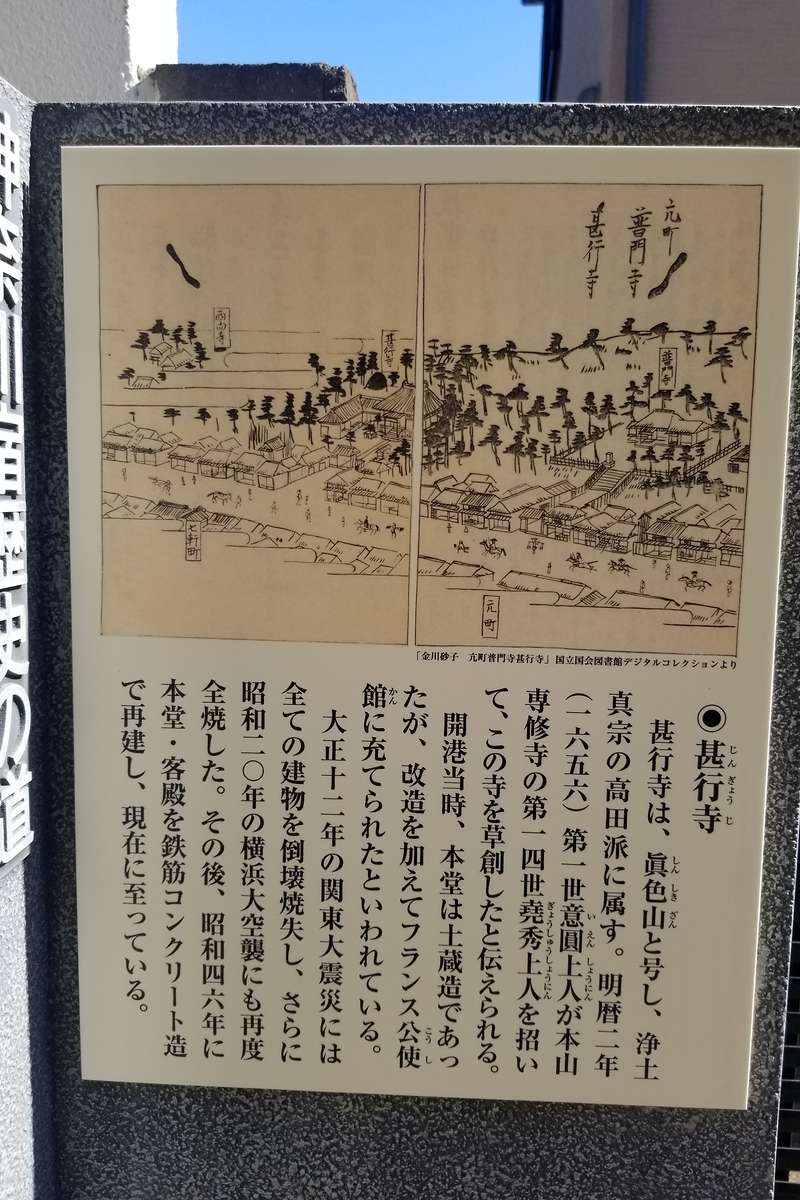 神奈川宿歴史の道
元町
普門寺
甚行寺
普門寺
甚行寺
西向寺
元町
七軒町
「金川砂子　亢町普門寺甚行寺」国立国会図書館デジタルコレクションより
◉甚行寺
じんぎょうじ
甚行寺は、眞色山と号し、浄土
しんしきざん
真宗の高田派に属す。明暦二年
（一六五六）第一世意圓上人が本山
いえんしょうにん
専修寺の第一四世堯秀上人を招い
ぎょうしゅうしょうにん
て、この寺を草創したと伝えられる。
開港当時、本堂は土蔵造であっ
たが、改造を加えてフランス公使
こうし
館に充てられたといわれている。
かん
大正十二年の関東大震災には
全ての建物を倒壊焼失し、さらに
昭和二〇年の横浜大空襲にも再度
全焼した。その後、昭和四六年に
本堂・客殿を鉄筋コンクリート造
で再建し、現在に至っている。